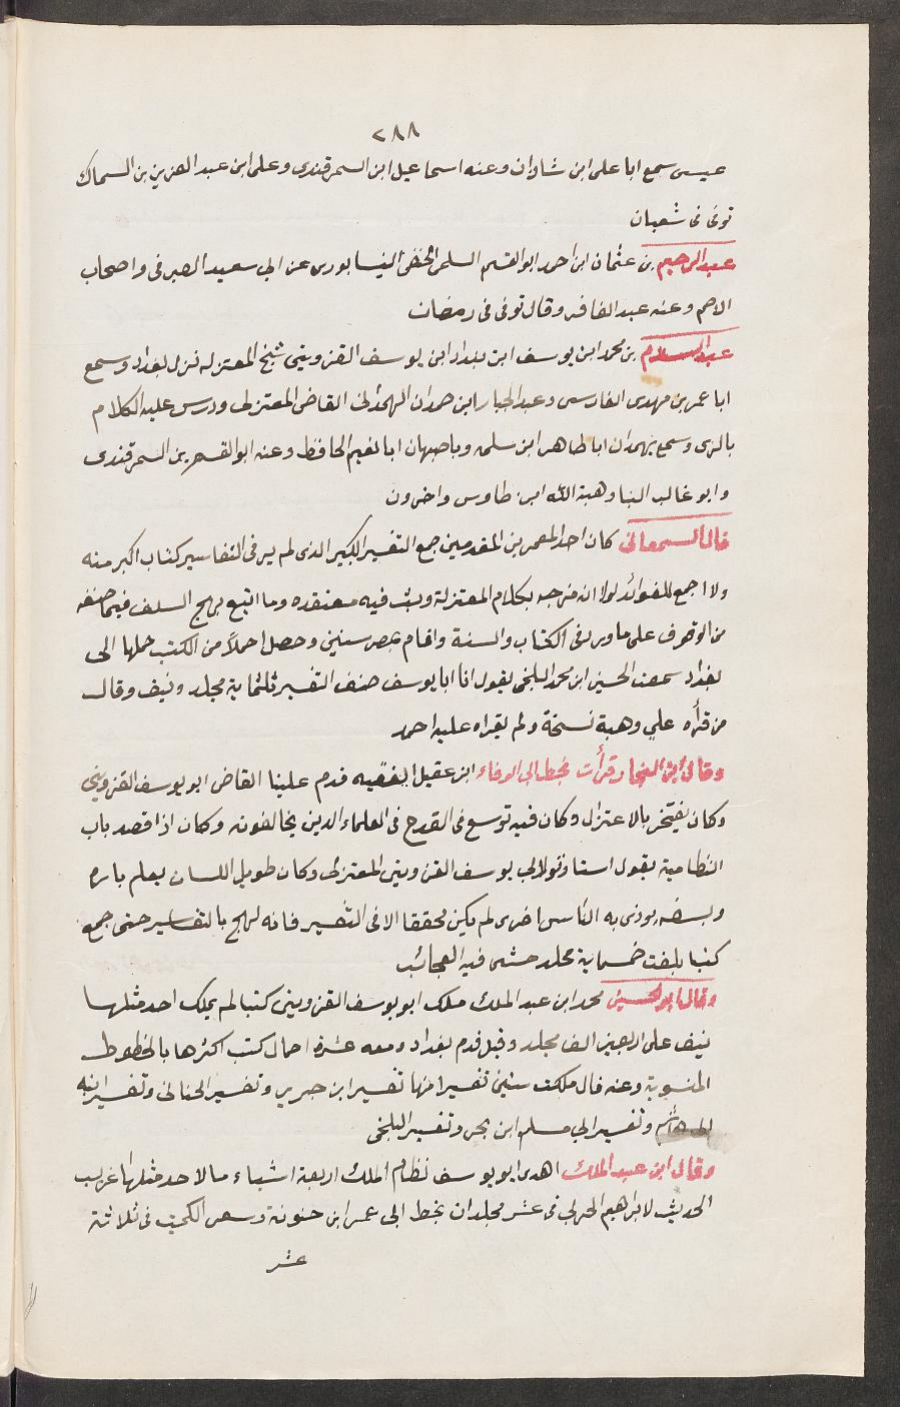 ٢٨٨
عيسى سمع ابا على ابن شاذان وعنه اسماعيل ابن السمرقندى وعلى ابن عبد العزيز بن السماك
توفى فى شعبان
عبد الرحيم بن عثمان ابن احمد ابو القسم السلمى الحنفى النيسابورى عن ابى سعيد الصيرفى واصحاب
الاصم وعنه عبد الغافر وقال توفى فى رمضان
عبد السلام بن محمد ابن يوسف ابن بندار ابن يوسف القزوينى شيخ المعتزله نزل بغداد وسمع
ابا عمر بن مهدى الفارسى وعبد الجبار ابن حمدان الهمذانى القاضى المعتزلى ودرس عليه الكلام
بالرى وسمع بهمدان ابا طاهر ابن سلمه وباصبهان ابا نعيم الحافظ وعنه ابو القسم بن السمرقندى
وابو غالب البنا وهبة الله ابن طاوس واخرون
قال السمعانى كان احد المعمرين المقدمين جمع التفسير الكبير الذى لم ير فى التفاسير كتاب اكبر منه
ولا اجمع للفوائد لولا انه مزجه بكلام المعتزلة وبث فيه معتقده وما اتبع نهج السلف فيما صنفه
من الوقوف على ما ورد فى الكتاب والسنة واقام بمصر سنين وحصل احمالا من الكتب حملها الى
بغداد سمعت الحسين ابن محمد البلخى يقول انا ابا يوسف صنف التفسير ثلثماية مجلد ونيف وقال
من قرأه علي وهبة نسخة ولم يقراه عليه احمد
وقال ابن النجار قرأت بخط ابى الوفاء ابن عقيل الفقيه قدم علينا القاضى ابو يوسف القزوينى
وكان يفتخر بالاعتزال وكان فيه توسع فى القدح فى العلماء الذين يخالفونه وكان اذا قصد باب
النظامية يقول استاذنوا لابى يوسف القزوينى المعتزلى وكان طويل اللسان يعلم باره
وبسفه يوذى به الناس اخرى لم يكن محققا الا فى التفسير فانه لهج بالتفاسير حتى جمع
كتبا بلغت خمساية مجلد حشى فيه العجائب
وقال ابو الحسين محمد ابن عبد الملك ملك ابو يوسف القزوينى كتبا لم يملك احد مثلها
نيف على اربعين الف مجلد وقيل قدم بغداد ومعه عشرة احمال كتب اكثرها بالخطوط
المنسوبة وعنه قال ملكت ستين تفسيرا منها تفسير ابن جرير وتفسير الجبائى وتفسير ابنه
ابى هاشم وتفسير ابى مسلم ابن بحر وتفسير البلخى
وقال ابن عبد الملك اهدى ابو يوسف نظام الملك اربعة اشياء ما لاحد مثلها غريب
الحديث لابراهيم الحربى فى عشر مجلدات بخط ابى عمر ابن حيويه وشعر الكميت فى ثلاثة
عشر